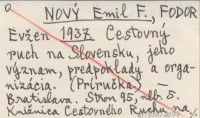 NOVÝ Emil F., FODOR
Evžen 1937 Cestovný
ruch na Slovensku, jeho
význam, predpoklady a orga-
nizácia. (Príručka). —
Bratislava. Stron 95, neb. 5.
Knižnica Cestovného Ruchu na